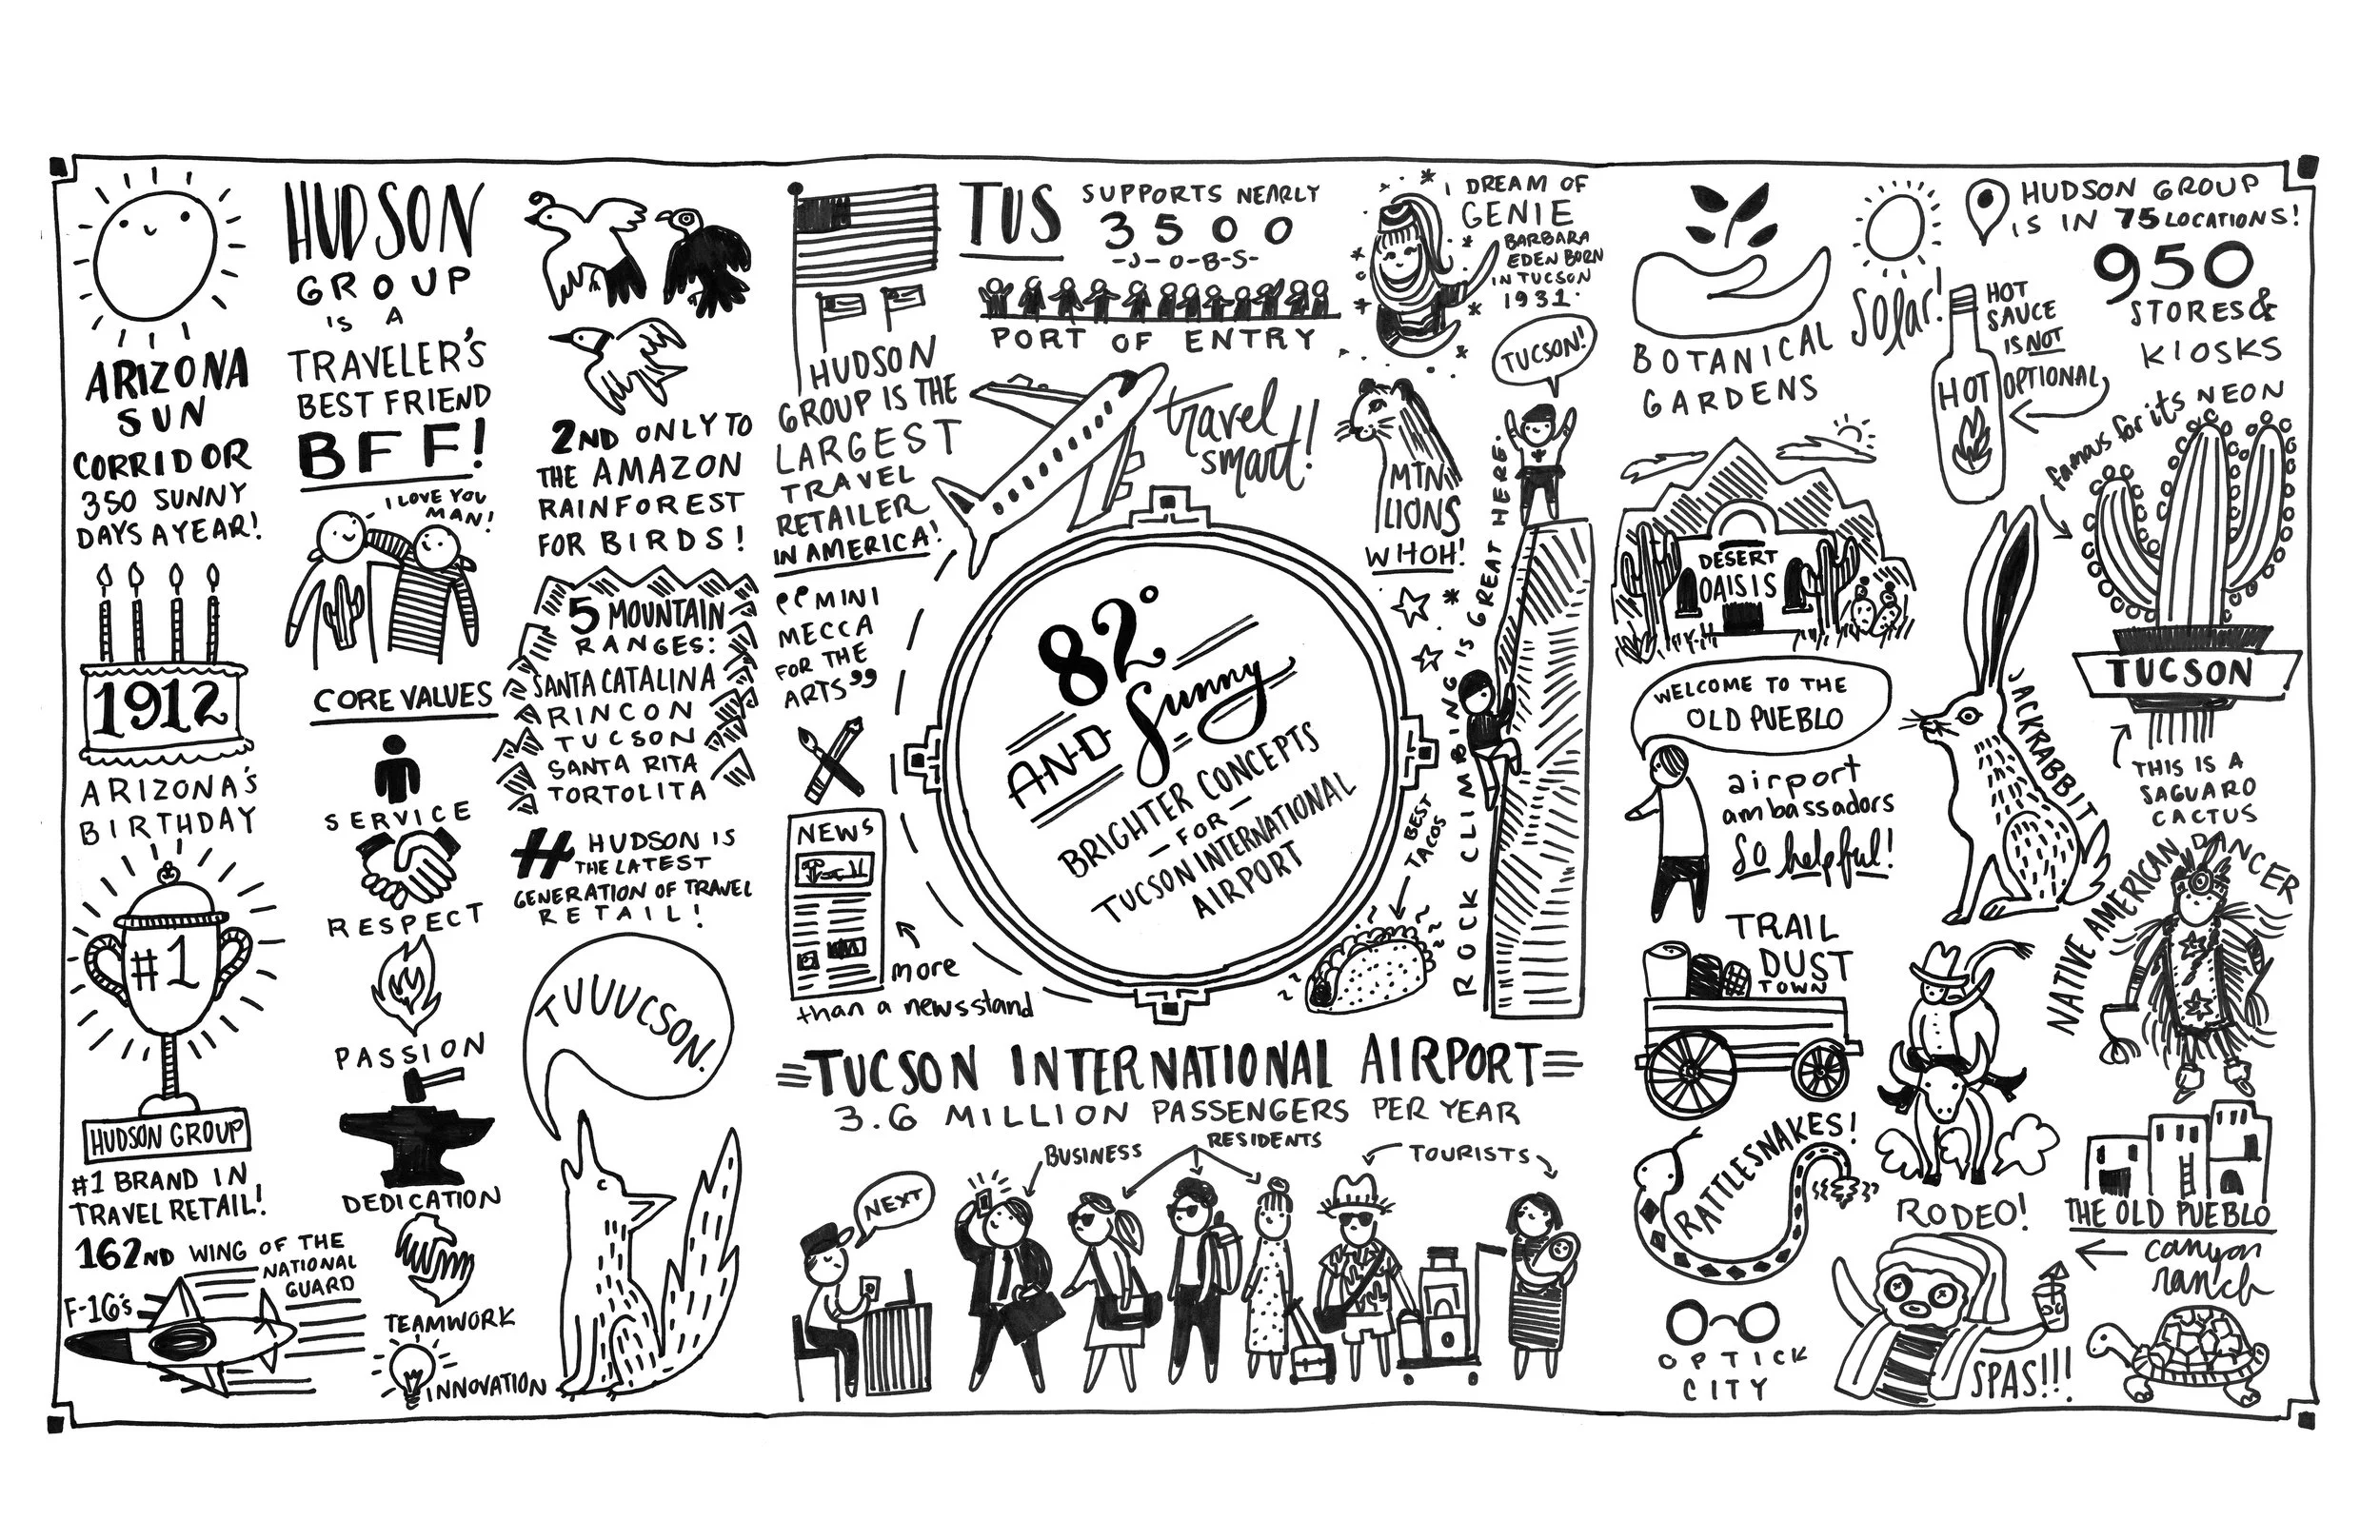 ARIZONA
SUN
CORRIDOR
350 SUNNY
DAYS A YEAR!
1912
ARIZONA'S
BIRTHDAY
#1
HUDSON GROUP
#1 BRAND IN
TRAVEL RETAIL!
162ND WING OF THE
NATIONAL
GUARD
F-16's
HUDSON
GROUP
IS A
TRAVELER'S
BEST FRIEND
BFF!
I LOVE YOU
MAN!
CORE VALUES
SERVICE
RESPECT
PASSION
DEDICATION
TEAMWORK
INNOVATION
2ND ONLY TO
THE AMAZON
RAINFOREST
FOR BIRDS!
5 MOUNTAIN
RANGES:
SANTA CATALINA
RINCON
TUCSON
SANTA RITA
TORTOLITA
# HUDSON IS
THE LATEST
GENERATION OF TRAVEL
RETAIL!
TUUUCSON!
HUDSON
GROUP IS THE
LARGEST
TRAVEL
RETAILER
IN AMERICA!
"MINI
MECCA
FOR THE
ARTS"
NEWS
more
than a newsstand
TUS
SUPPORTS NEARLY
3500
-J-O-B-S-
PORT OF ENTRY
travel
smart!
I DREAM OF
GENIE
BARBARA
EDEN BORN
IN TUCSON
1931.
TUCSON!
MTN
LIONS
WHOH!
ROCK CLIMBING IS GREAT HERE.
82°
AND Sunny
BRIGHTER CONCEPTS
- FOR -
TUCSON INTERNATIONAL
AIRPORT
BEST
TACOS
TUCSON INTERNATIONAL AIRPORT
3.6 MILLION PASSENGERS PER YEAR
BUSINESS
RESIDENTS
TOURISTS
NEXT
BOTANICAL
GARDENS
Solar!
HOT
SAUCE
IS NOT
OPTIONAL
HOT
HUDSON GROUP
IS IN 75 LOCATIONS!
950
STORES &
KIOSKS
famous for its NEON
TUCSON
THIS IS A
SAGUARO
CACTUS
DESERT
OAISIS
WELCOME TO THE
OLD PUEBLO
airport
ambassadors
So helpful!
JACKRABBIT
NATIVE AMERICAN DANCER
TRAIL
DUST
TOWN
RATTLESNAKES!
RODEO!
THE OLD PUEBLO
canyon
ranch
OPTICK
CITY
SPAS!!!